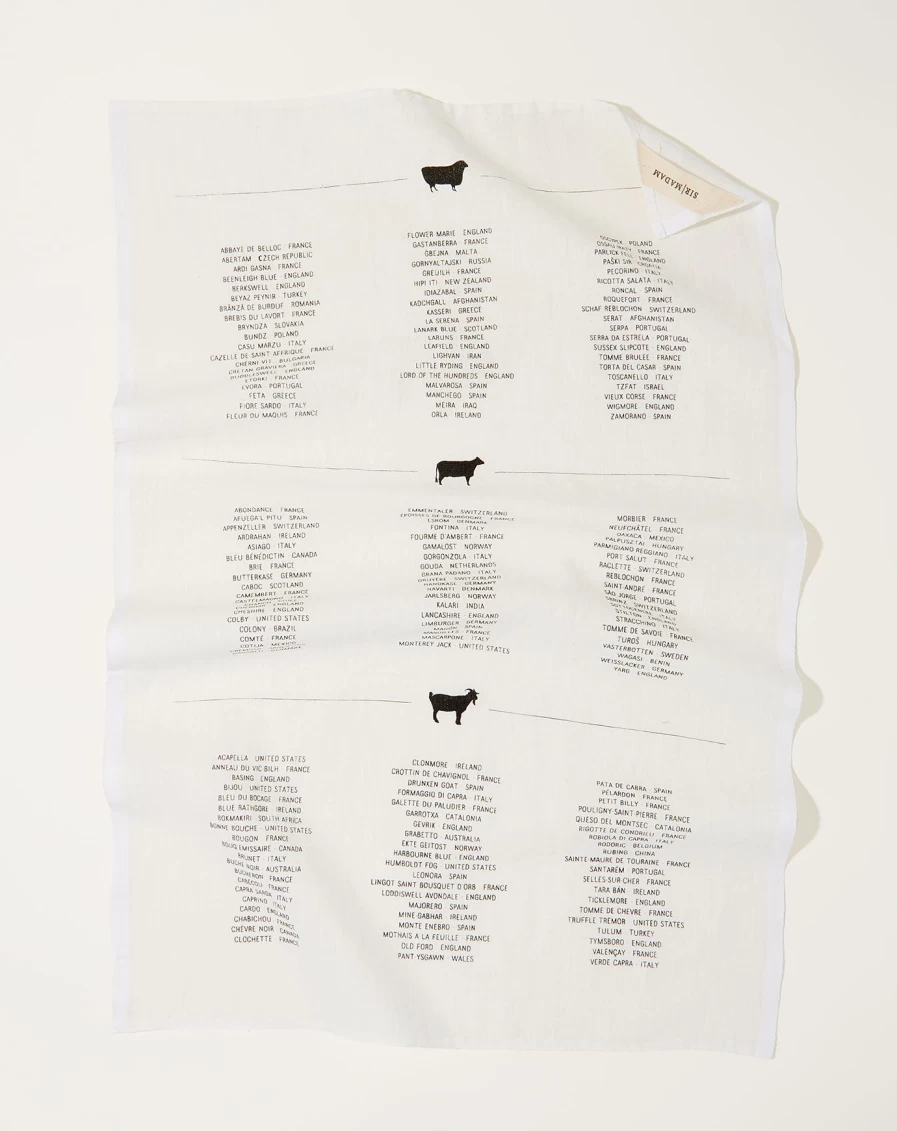 SIR/MADAM
ABBAYE DE BELLOC FRANCE
ABERTAM CZECH REPUBLIC
ARDI GASNA FRANCE
BEENLEIGH BLUE ENGLAND
BERKSWELL ENGLAND
BEYAZ PEYNIR TURKEY
BRÂNZĂ DE BURDUF ROMANIA
BREBIS DU LAVORT FRANCE
BRYNDZA SLOVAKIA
BUNDZ POLAND
CASU MARZU ITALY
CAZELLE DE SAINT AFFRIQUE FRANCE
CHERNI VIT BULGARIA
CRETAN GRAVIERA GREECE
DUDDLESWELL ENGLAND
ETORKI FRANCE
EVORA PORTUGAL
FETA GREECE
FIORE SARDO ITALY
FLEUR DU MAQUIS FRANCE
FLOWER MARIE ENGLAND
GASTANBERRA FRANCE
GBEJNA MALTA
GORNYALTAJSKI RUSSIA
GREUILH FRANCE
HIPI ITI NEW ZEALAND
IDIAZABAL SPAIN
KADCHGALL AFGHANISTAN
KASSERI GREECE
LA SERENA SPAIN
LANARK BLUE SCOTLAND
LARUNS FRANCE
LEAFIELD ENGLAND
LIGHVAN IRAN
LITTLE RYDING ENGLAND
LORD OF THE HUNDREDS ENGLAND
MALVAROSA SPAIN
MANCHEGO SPAIN
MEIRA IRAQ
ORLA IRELAND
OSCYPEK POLAND
OSSAU IRATY FRANCE
PARLICK FELL ENGLAND
PAŠKI SIR CROATIA
PECORINO ITALY
RICOTTA SALATA ITALY
RONCAL SPAIN
ROQUEFORT FRANCE
SCHAF REBLOCHON SWITZERLAND
SERAT AFGHANISTAN
SERPA PORTUGAL
SERRA DA ESTRELA PORTUGAL
SUSSEX SLIPCOTE ENGLAND
TOMME BRULEE FRANCE
TORTA DEL CASAR SPAIN
TOSCANELLO ITALY
TZFAT ISRAEL
VIEUX CORSE FRANCE
WIGMORE ENGLAND
ZAMORANO SPAIN
ABONDANCE FRANCE
AFUEGA'L PITU SPAIN
APPENZELLER SWITZERLAND
ARDRAHAN IRELAND
ASIAGO ITALY
BLEU BÉNÉDICTIN CANADA
BRIE FRANCE
BUTTERKASE GERMANY
CABOC SCOTLAND
CAMEMBERT FRANCE
CASTELMAGNO ITALY
ENGLAND
CHESHIRE ENGLAND
COLBY UNITED STATES
COLONY BRAZIL
COMTÉ FRANCE
COTIJA MEXICO
EMMENTALER SWITZERLAND
EPOISSES DE BOURGOGNE FRANCE
ESROM DENMARK
FONTINA ITALY
FOURME D'AMBERT FRANCE
GAMALOST NORWAY
GORGONZOLA ITALY
GOUDA NETHERLANDS
GRANA PADANO ITALY
GRUYÈRE SWITZERLAND
HANDKASE GERMANY
HAVARTI DENMARK
JARLSBERG NORWAY
KALARI INDIA
LANCASHIRE ENGLAND
LIMBURGER GERMANY
MAHON SPAIN
MAROILLES FRANCE
MASCARPONE ITALY
MONTEREY JACK UNITED STATES
MORBIER FRANCE
NEUFCHÂTEL FRANCE
OAXACA MEXICO
PALPUSZTAI HUNGARY
PARMIGIANO REGGIANO ITALY
PORT SALUT FRANCE
RACLETTE SWITZERLAND
REBLOCHON FRANCE
SAINT-ANDRE FRANCE
SÃO JORGE PORTUGAL
SBRINZ SWITZERLAND
ITALY
STILTON ENGLAND
STRACCHINO ITALY
TOMME DE SAVOIE FRANCE
TUROŠ HUNGARY
VASTERBOTTEN SWEDEN
WAGASI BENIN
WEISSLACKER GERMANY
YARG ENGLAND
ACAPELLA UNITED STATES
ANNEAU DU VIC BILH FRANCE
BASING ENGLAND
BIJOU UNITED STATES
BLEU DU BOCAGE FRANCE
BLUE RATHGORE IRELAND
BOKMAKIRI SOUTH AFRICA
BONNE BOUCHE UNITED STATES
BOUGON FRANCE
BOUQ ÉMISSAIRE CANADA
BRUNET ITALY
BUCHE NOIR AUSTRALIA
BUCHERON FRANCE
CABECOU FRANCE
CAPRA SARDA ITALY
CAPRINO ITALY
CARDO ENGLAND
CHABICHOU FRANCE
CHÈVRE NOIR CANADA
CLOCHETTE FRANCE
CLONMORE IRELAND
CROTTIN DE CHAVIGNOL FRANCE
DRUNKEN GOAT SPAIN
FORMAGGIO DI CAPRA ITALY
GALETTE DU PALUDIER FRANCE
GARROTXA CATALONIA
GEVRIK ENGLAND
GRABETTO AUSTRALIA
EKTE GEITOST NORWAY
HARBOURNE BLUE ENGLAND
HUMBOLDT FOG UNITED STATES
LEONORA SPAIN
LINGOT SAINT BOUSQUET D'ORB FRANCE
LODDISWELL AVONDALE ENGLAND
MAJORERO SPAIN
MINE-GABHAR IRELAND
MONTE ENEBRO SPAIN
MOTHAIS A LA FEUILLE FRANCE
OLD FORD ENGLAND
PANT YSGAWN WALES
PATA DE CABRA SPAIN
PÉLARDON FRANCE
PETIT BILLY FRANCE
POULIGNY-SAINT-PIERRE FRANCE
QUESO DEL MONTSEC CATALONIA
RIGOTTE DE CONDRIEU FRANCE
ROBIOLA DI CAPRA ITALY
RODORIC BELGIUM
RUBING CHINA
SAINTE-MAURE DE TOURAINE FRANCE
SANTARÉM PORTUGAL
SELLES-SUR-CHER FRANCE
TARA BÁN IRELAND
TICKLEMORE ENGLAND
TOMME DE CHEVRE FRANCE
TRUFFLE TREMOR UNITED STATES
TULUM TURKEY
TYMSBORO ENGLAND
VALENÇAY FRANCE
VERDE CAPRA ITALY